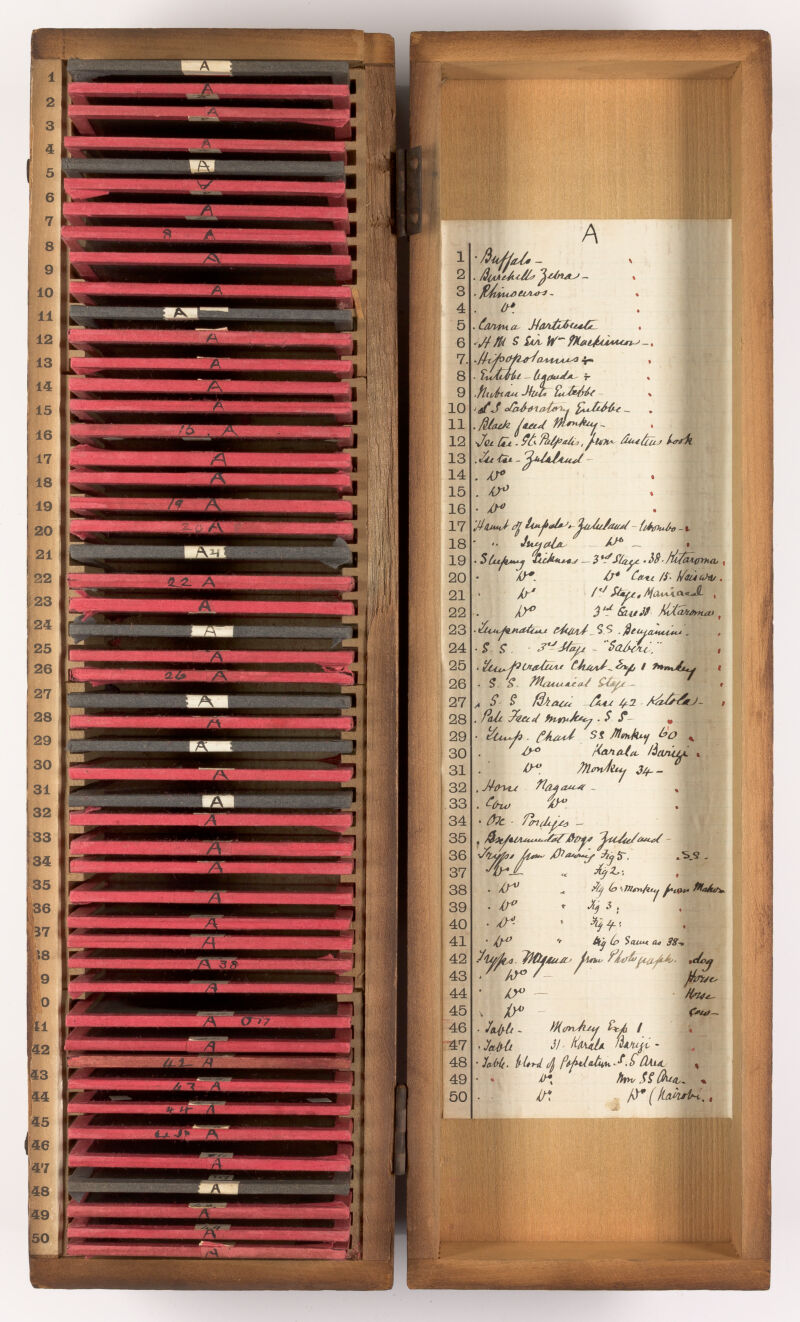 A
1 A
2 A
3 A
4 A
5 A
6 A
7 A
8 8 A
9 A
10 A
11 A
12 A
13 A
14 A
15 A
16 15 A
17 A
18 A
19 19 A
20 20 A
21 A 21
22 22 A
23 A
24 A
25 A
26 26 A
27 A
28 A
29 A
30 A
31 A
32 A
33 A
34 A
35 A
36 A
37 A
38 A 38
9 A
0 A
41 A
42 42 A
43 43 A
44 44 A
45 A
46
47 A
48 A
49 A
50 A
A
1 Buffalo -
2 Burchells Zebra -
3 Rhinoceros -
4 Do
5 Carma Hartebeeste
6 H M S Sir Wm Mackinnon -
7 Hipopotamus -
8 Entebbe - Uganda -
9 Nubian Huts Entebbe
10 S S Laboratory Entebbe -
11 Black faced Monkey -
12 Tse tse - Gl. Palpalis, from Austens book
13 Tse tse - Zululand -
14 Do
15 Do
16 Do
17 Haunt of Impala, Zululand - Ubombo -
18 " Inyala Do -
19 Sleeping Sickness - 3rd Stage. 38. Kitaroma
20 Do Do Case 15.
21 Do 1st Stage. Maniacal
22 Do 3rd Case 38 Kitaroma
23 Temperature Chart S.S. Benjamini.
24 S. S. 3rd Stage - "Sabiri."
25 Temperature Chart - Exp 1 monkey
26 S. S. Maniacal Stage -
27 S S Brain Case 42 - Katola -
28 Pale Faced monkey. S S -
29 Temp. Chart SS Monkey 60
30 Do Karala Barizi
31 Do Monkey 34 -
32 Horse Nagana -
33 Cow Do
34 Ox -
35 Experimental Dogs Zululand -
36 Tryps from Drawing Fig 5. S.S.
37 Do - " Fig 2.
38 Do " Fig 6. monkey from
39 Do " Fig 3
40 Do " Fig 4
41 Do " Fig 6 Same as 38 -
42 Tryps. Nagana from Photograph. dog
43 Do - Horse
44 Do - Horse
45 Do - Cow -
46 Table - Monkey Exp 1
47 Table 31. Karala Barizi -
48 Table. blood of Population. S.S Area
49 Do Non SS Area.
50 Do Do (Nairobi.